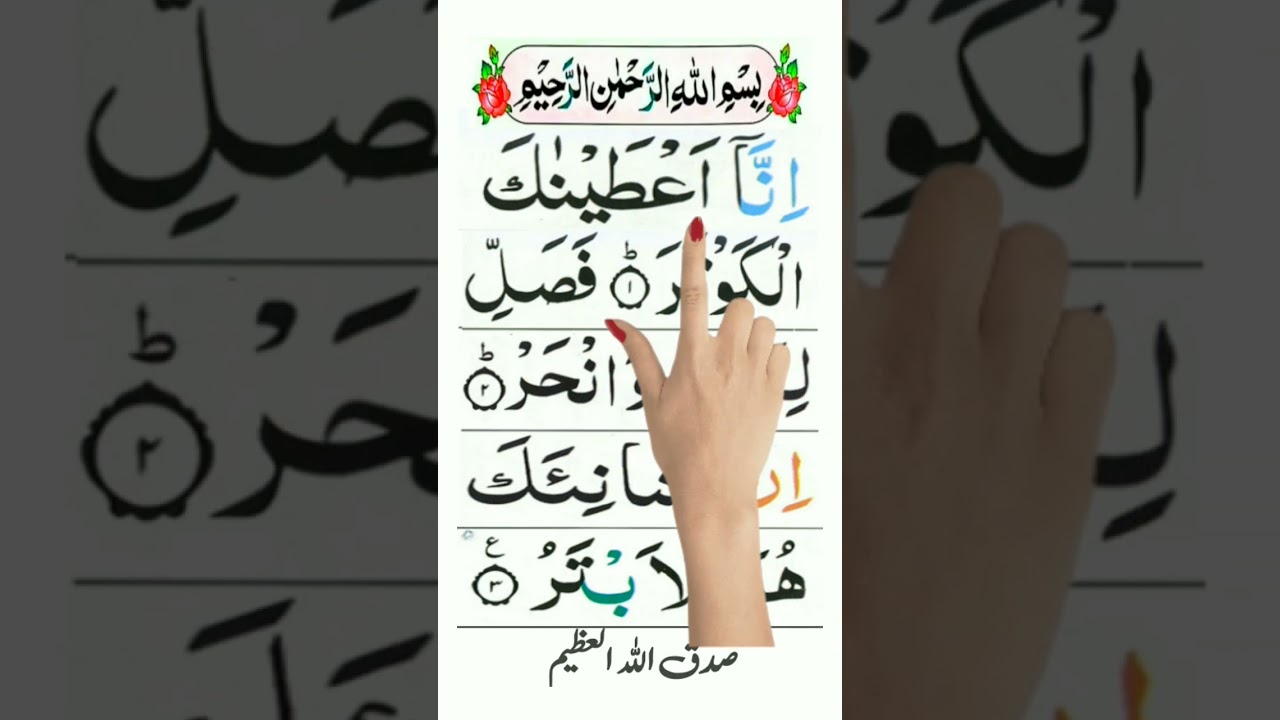 بِسْمِ اللهِ الرَّحْمٰنِ الرَّحِيْمِ
اِنَّآ اَعْطَيْنٰكَ
الْكَوْثَرَ ؕ ١ فَصَلِّ
وَانْحَرْ ؕ ٢
شَانِئَكَ
الْاَبْتَرُ ٣ ع
صدق الله العظيم